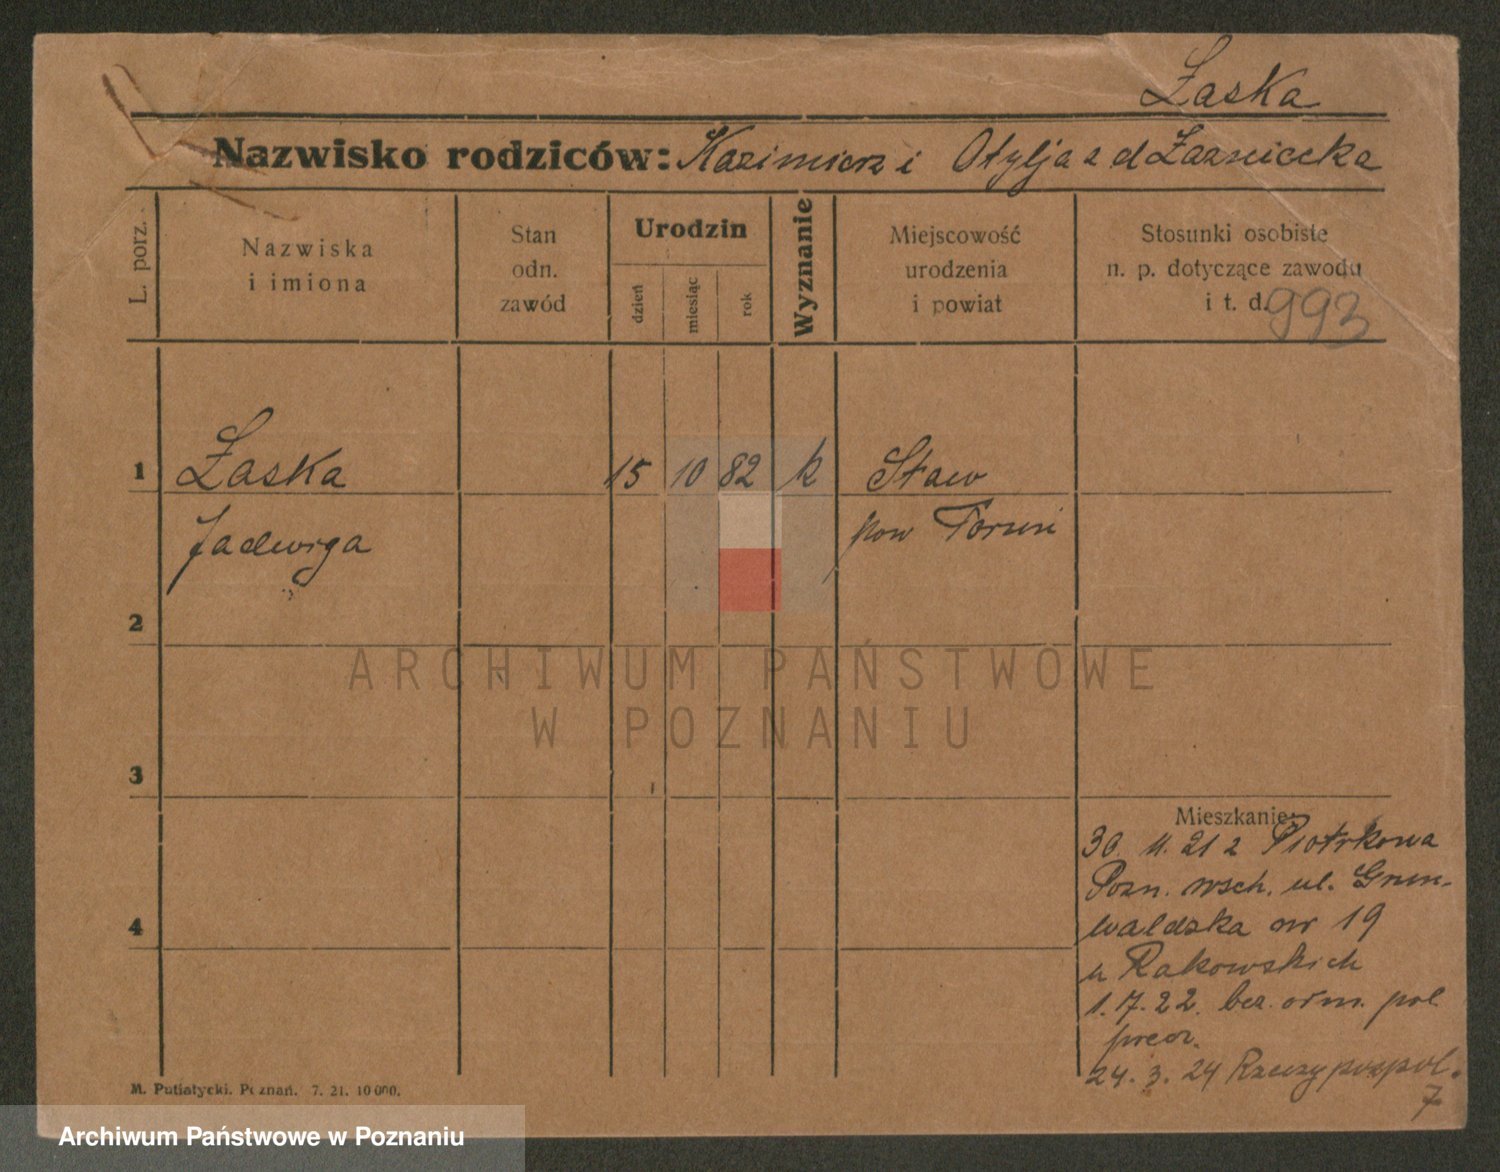 Łaska
Nazwisko rodziców: Kazimierz i Otylja z d
L. porz.
Nazwiska
i imiona
Stan
odn.
zawód
Urodzin
dzień
miesiąc
rok
Wyznanie
Miejscowość
urodzenia
i powiat
Stosunki osobiste
n. p. dotyczące zawodu
i t. d.
993
1
Łaska
15 10 82 k
Staw
Jadwiga
pow Toruń
2
ARCHIWUM PAŃSTWOWE
W POZNANIU
3
4
Mieszkanie:
30. 11. 21 z Piotrkowa
Pozn. wsch. ul. Grun-
waldzka nr 19
u Rakowskich
1. 7. 22. bez. pol
24. 3. 24 Rzeczypospol.
7
M. Putiatycki. Poznań. 7. 21. 10 000.
Archiwum Państwowe w Poznaniu